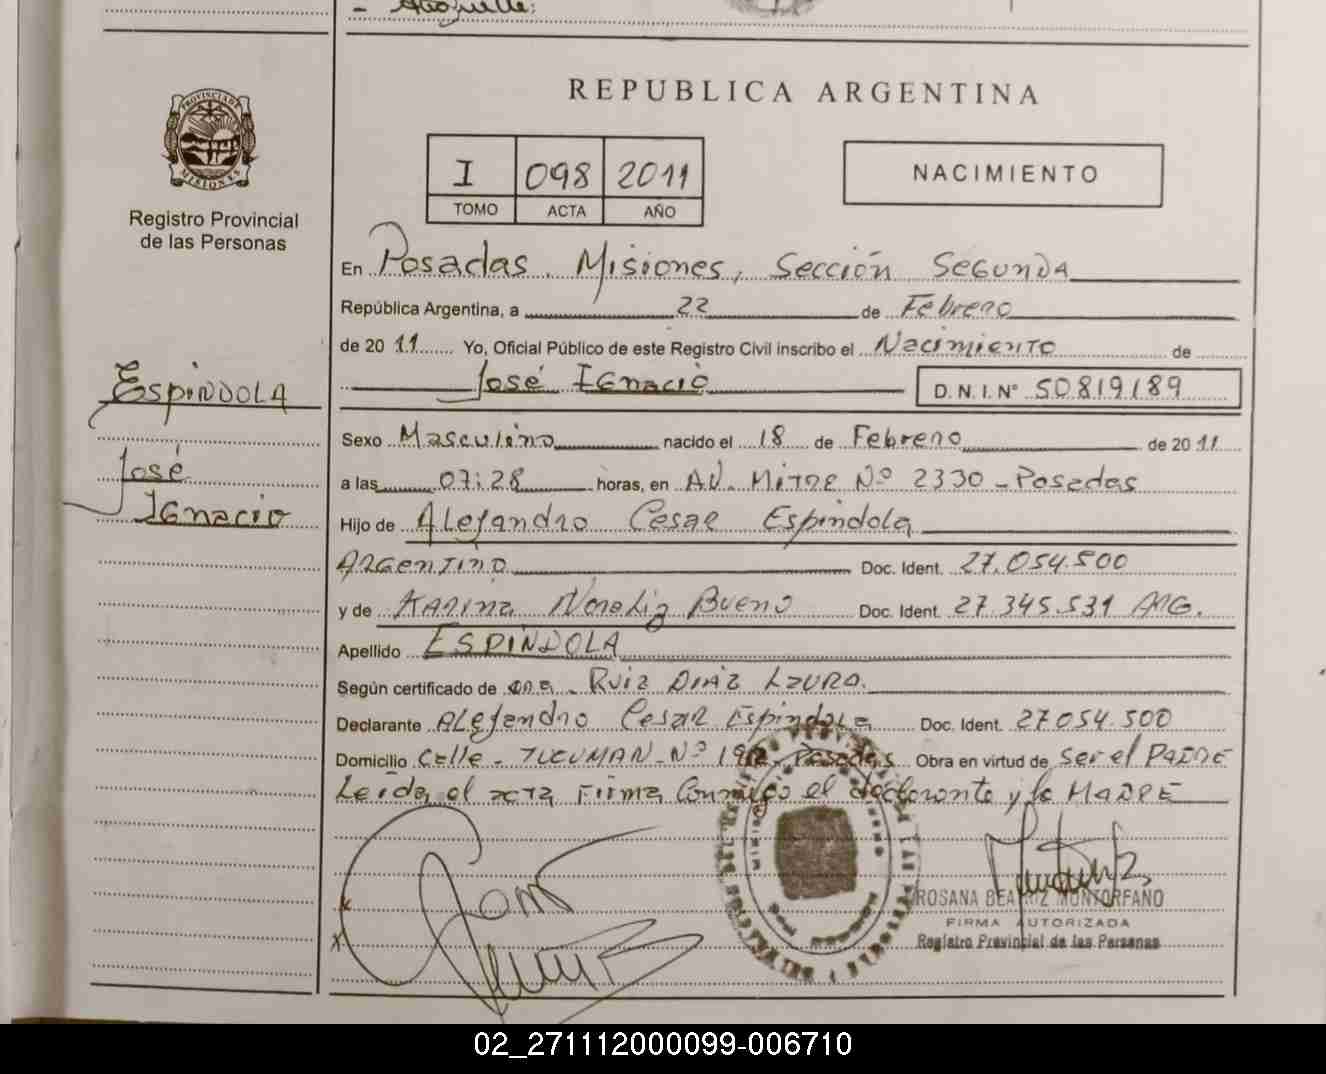 REPUBLICA ARGENTINA
PROVINCIA DE MISIONES
Registro Provincial
de las Personas
I 098 2011
TOMO ACTA AÑO
NACIMIENTO
En Posadas, Misiones, Sección Segunda
República Argentina, a 22 de Febrero
de 2011 Yo, Oficial Público de este Registro Civil inscribo el Nacimiento de
José Ignacio D.N.I.Nº 50819189
Espíndola
José
Ignacio
Sexo Masculino nacido el 18 de Febrero de 2011
a las 07:28 horas, en AV. Mitre Nº 2330 - Posadas
Hijo de Alejandro Cesar Espíndola
Argentino Doc. Ident. 27.054.500
y de Karina Noelia Bueno Doc. Ident. 27.345.531 ARG.
Apellido ESPÍNDOLA
Según certificado de Ruiz Diaz Laura.
Declarante Alejandro Cesar Espíndola Doc. Ident. 27054.500
Domicilio Calle - TUCUMAN - Nº Posadas Obra en virtud de ser el PADRE
Leída el acta Firma Conmigo el declarante y la MADRE
ROSANA BEATRIZ MONTORFANO
FIRMA AUTORIZADA
Registro Provincial de las Personas
02_271112000099-006710